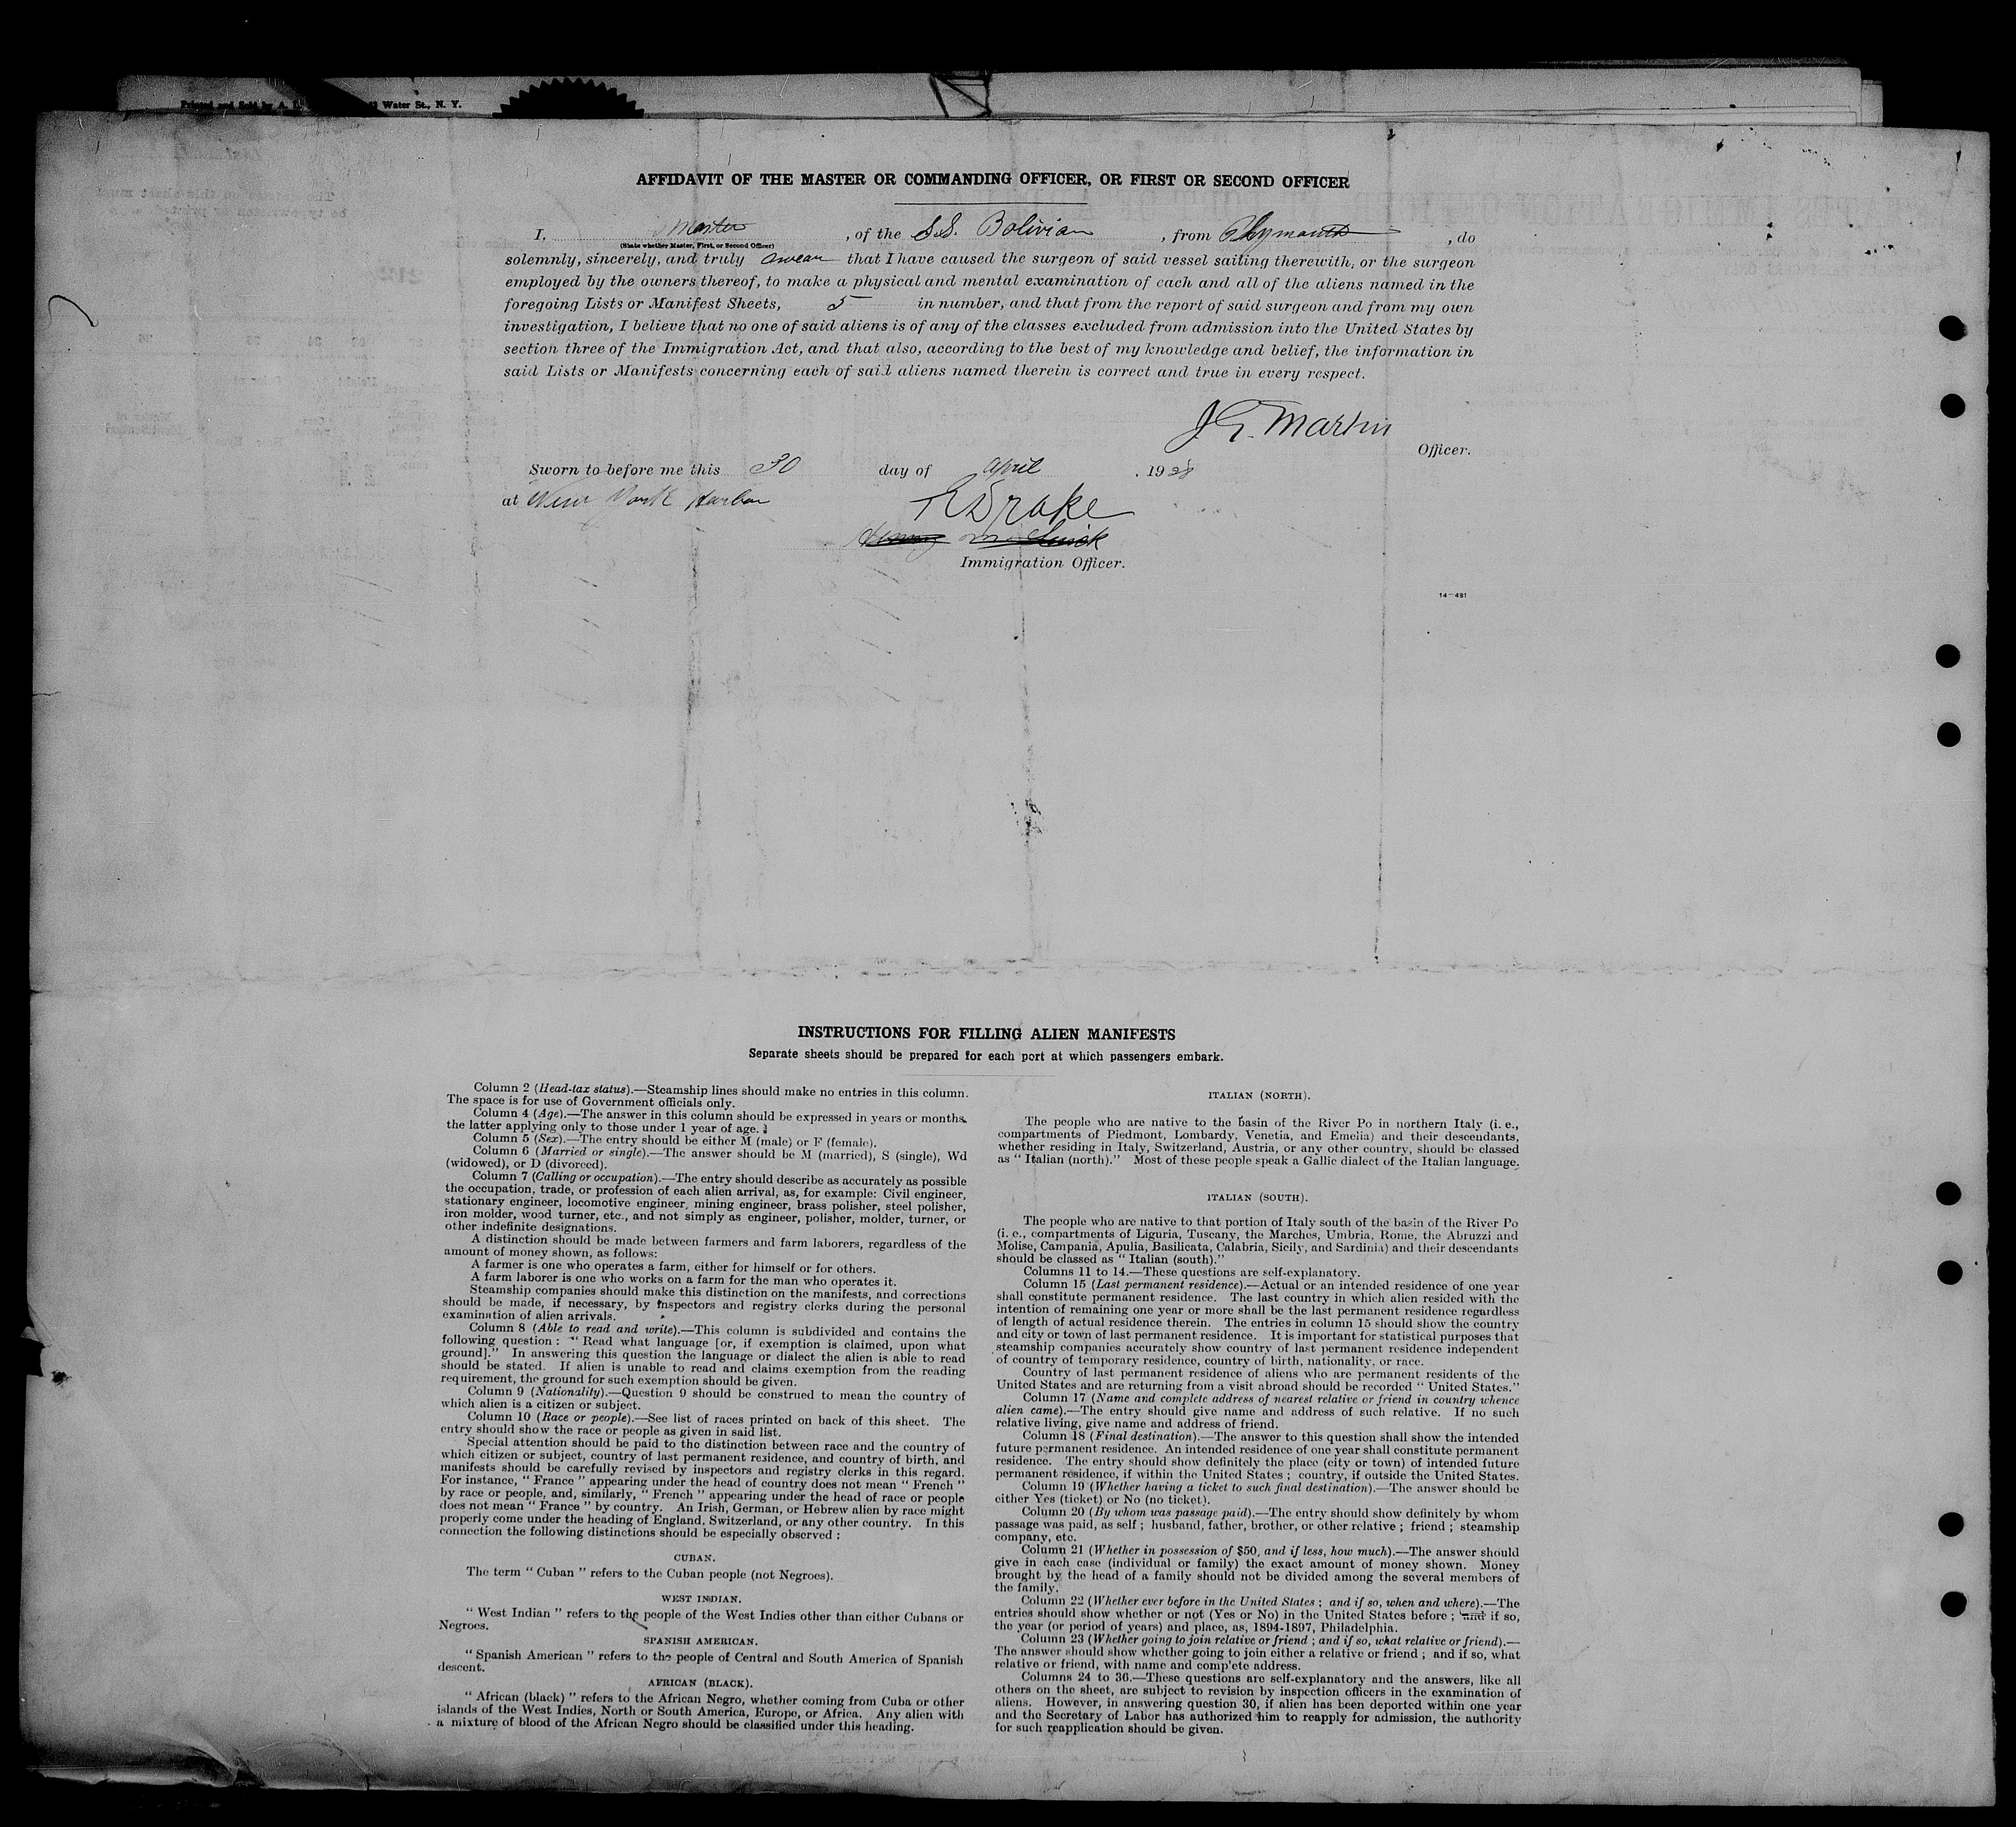 Printed and Sold by A. L. Water St., N. Y.
AFFIDAVIT OF THE MASTER OR COMMANDING OFFICER, OR FIRST OR SECOND OFFICER
I, Master, of the S.S. Bolivian, from Plymouth, do
(State whether Master, First, or Second Officer)
solemnly, sincerely, and truly swear that I have caused the surgeon of said vessel sailing therewith, or the surgeon
employed by the owners thereof, to make a physical and mental examination of each and all of the aliens named in the
foregoing Lists or Manifest Sheets, 5 in number, and that from the report of said surgeon and from my own
investigation, I believe that no one of said aliens is of any of the classes excluded from admission into the United States by
section three of the Immigration Act, and that also, according to the best of my knowledge and belief, the information in
said Lists or Manifests concerning each of said aliens named therein is correct and true in every respect.
J. E. Martin
Officer.
Sworn to before me this 30 day of April, 1928
at New York Harbor
Drake
Immigration Officer.
14-491
INSTRUCTIONS FOR FILLING ALIEN MANIFESTS
Separate sheets should be prepared for each port at which passengers embark.
Column 2 (Head-tax status).—Steamship lines should make no entries in this column.
The space is for use of Government officials only.
Column 4 (Age).—The answer in this column should be expressed in years or months,
the latter applying only to those under 1 year of age.
Column 5 (Sex).—The entry should be either M (male) or F (female).
Column 6 (Married or single).—The answer should be M (married), S (single), Wd
(widowed), or D (divorced).
Column 7 (Calling or occupation).—The entry should describe as accurately as possible
the occupation, trade, or profession of each alien arrival, as, for example: Civil engineer,
stationary engineer, locomotive engineer, mining engineer, brass polisher, steel polisher,
iron molder, wood turner, etc., and not simply as engineer, polisher, molder, turner, or
other indefinite designations.
A distinction should be made between farmers and farm laborers, regardless of the
amount of money shown, as follows:
A farmer is one who operates a farm, either for himself or for others.
A farm laborer is one who works on a farm for the man who operates it.
Steamship companies should make this distinction on the manifests, and corrections
should be made, if necessary, by inspectors and registry clerks during the personal
examination of alien arrivals.
Column 8 (Able to read and write).—This column is subdivided and contains the
following question: "Read what language [or, if exemption is claimed, upon what
ground]." In answering this question the language or dialect the alien is able to read
should be stated. If alien is unable to read and claims exemption from the reading
requirement, the ground for such exemption should be given.
Column 9 (Nationality).—Question 9 should be construed to mean the country of
which alien is a citizen or subject.
Column 10 (Race or people).—See list of races printed on back of this sheet. The
entry should show the race or people as given in said list.
Special attention should be paid to the distinction between race and the country of
which citizen or subject, country of last permanent residence, and country of birth, and
manifests should be carefully revised by inspectors and registry clerks in this regard.
For instance, "France" appearing under the head of country does not mean "French"
by race or people, and, similarly, "French" appearing under the head of race or people
does not mean "France" by country. An Irish, German, or Hebrew alien by race might
properly come under the heading of England, Switzerland, or any other country. In this
connection the following distinctions should be especially observed:
CUBAN.
The term "Cuban" refers to the Cuban people (not Negroes).
WEST INDIAN.
"West Indian" refers to the people of the West Indies other than either Cubans or
Negroes.
SPANISH AMERICAN.
"Spanish American" refers to the people of Central and South America of Spanish
descent.
AFRICAN (BLACK).
"African (black)" refers to the African Negro, whether coming from Cuba or other
islands of the West Indies, North or South America, Europe, or Africa. Any alien with
a mixture of blood of the African Negro should be classified under this heading.
ITALIAN (NORTH).
The people who are native to the basin of the River Po in northern Italy (i. e.,
compartments of Piedmont, Lombardy, Venetia, and Emelia) and their descendants,
whether residing in Italy, Switzerland, Austria, or any other country, should be classed
as "Italian (north)." Most of these people speak a Gallic dialect of the Italian language.
ITALIAN (SOUTH).
The people who are native to that portion of Italy south of the basin of the River Po
(i. e., compartments of Liguria, Tuscany, the Marches, Umbria, Rome, the Abruzzi and
Molise, Campania, Apulia, Basilicata, Calabria, Sicily, and Sardinia) and their descendants
should be classed as "Italian (south)."
Columns 11 to 14.—These questions are self-explanatory.
Column 15 (Last permanent residence).—Actual or an intended residence of one year
shall constitute permanent residence. The last country in which alien resided with the
intention of remaining one year or more shall be the last permanent residence regardless
of length of actual residence therein. The entries in column 15 should show the country
and city or town of last permanent residence. It is important for statistical purposes that
steamship companies accurately show country of last permanent residence independent
of country of temporary residence, country of birth, nationality, or race.
Country of last permanent residence of aliens who are permanent residents of the
United States and are returning from a visit abroad should be recorded "United States."
Column 17 (Name and complete address of nearest relative or friend in country whence
alien came).—The entry should give name and address of such relative. If no such
relative living, give name and address of friend.
Column 18 (Final destination).—The answer to this question shall show the intended
future permanent residence. An intended residence of one year shall constitute permanent
residence. The entry should show definitely the place (city or town) of intended future
permanent residence, if within the United States; country, if outside the United States.
Column 19 (Whether having a ticket to such final destination).—The answer should be
either Yes (ticket) or No (no ticket).
Column 20 (By whom was passage paid).—The entry should show definitely by whom
passage was paid, as self; husband, father, brother, or other relative; friend; steamship
company, etc.
Column 21 (Whether in possession of $50, and if less, how much).—The answer should
give in each case (individual or family) the exact amount of money shown. Money
brought by the head of a family should not be divided among the several members of
the family.
Column 22 (Whether ever before in the United States; and if so, when and where).—The
entries should show whether or not (Yes or No) in the United States before; and if so,
the year (or period of years) and place, as, 1894-1897, Philadelphia.
Column 23 (Whether going to join relative or friend; and if so, what relative or friend).—
The answer should show whether going to join either a relative or friend; and if so, what
relative or friend, with name and complete address.
Columns 24 to 36.—These questions are self-explanatory and the answers, like all
others on the sheet, are subject to revision by inspection officers in the examination of
aliens. However, in answering question 30, if alien has been deported within one year
and the Secretary of Labor has authorized him to reapply for admission, the authority
for such reapplication should be given.